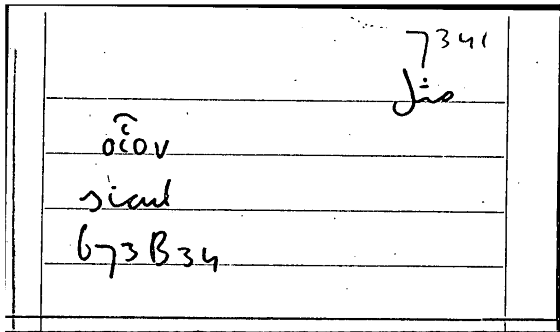 7341
مثل
οἷον
sicut
673B34